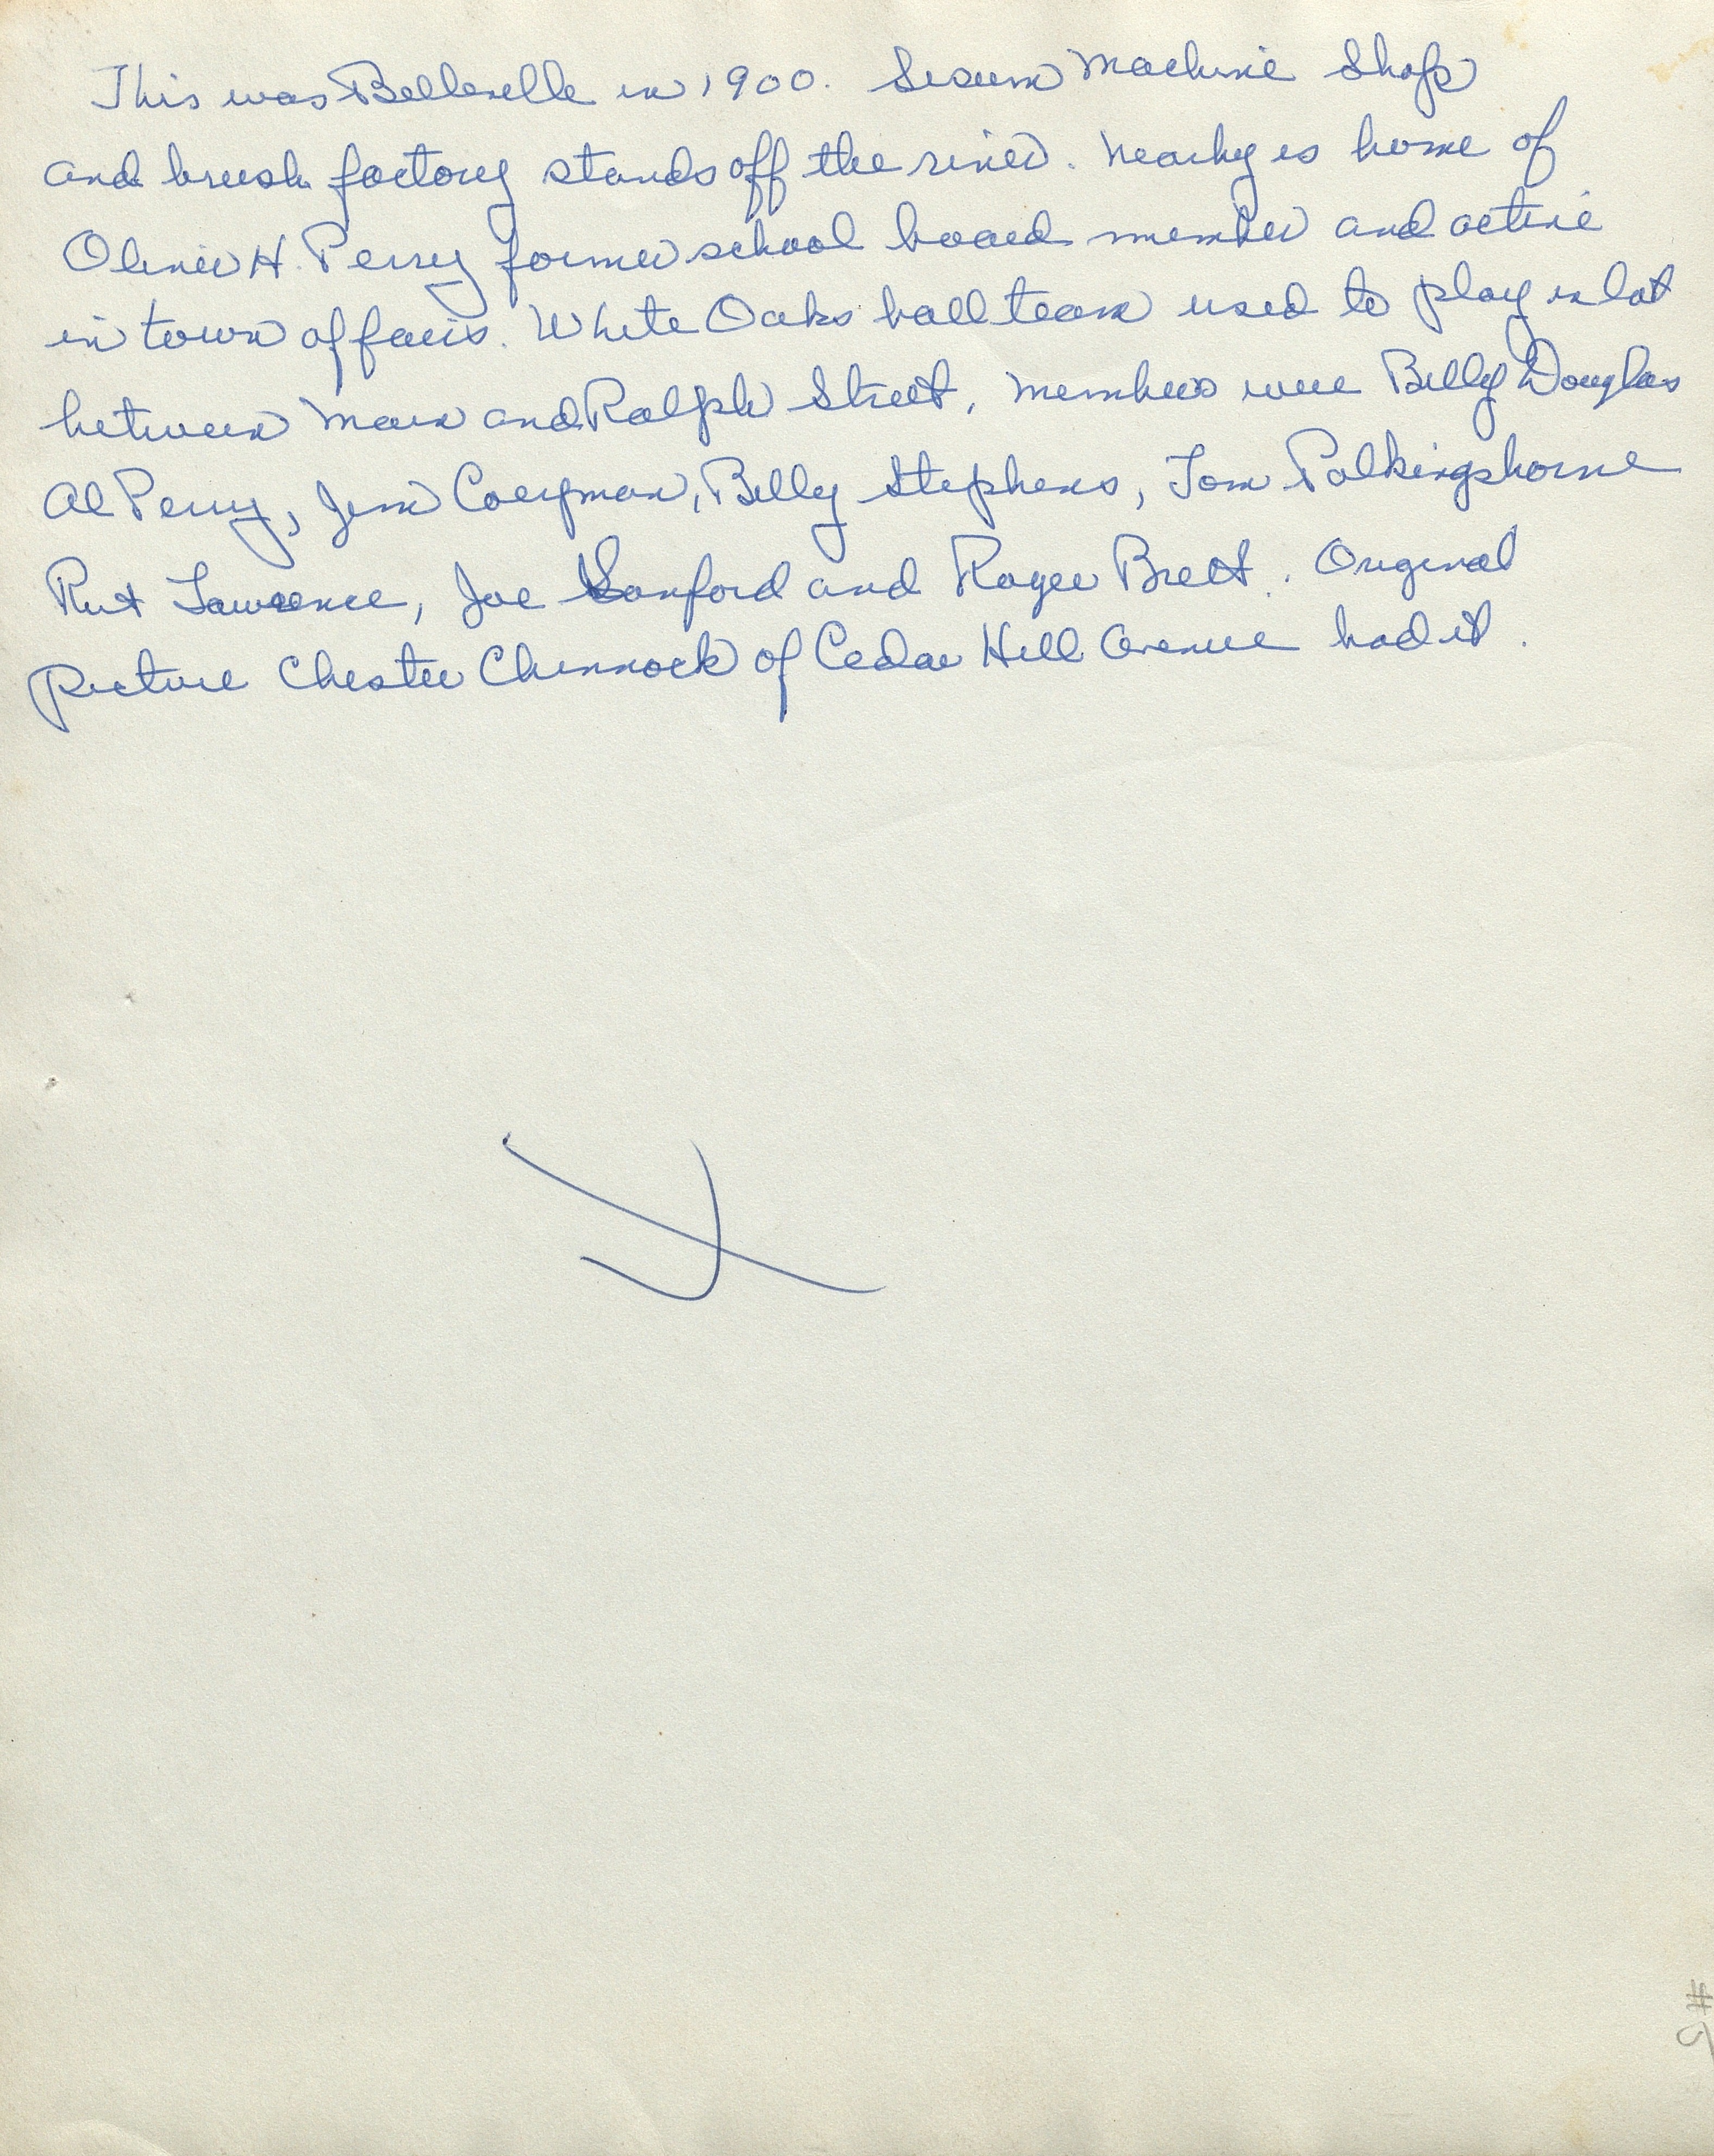 This was Belleville in 1900. Machine Shop
and brush factory stands off the river. Nearby is home of
Oliver H. Perry former school board member and active
in town affairs. White Oaks ball team used to play in lot
between Main and Ralph Street, members were Billy Douglas
Al Perry, Jim Coeyman, Billy Stephens, Tom Polkinghorne
Rut Lawrence, Joe Sanford and Roger Brett. Original
picture Chester Chinnock of Cedar Hill Avenue had it.